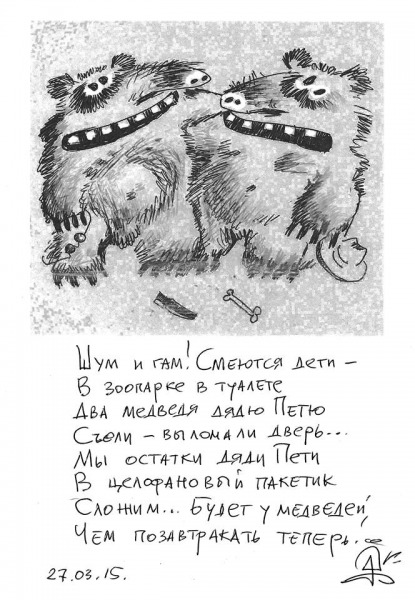 Шум и гам! Смеются дети –
В зоопарке в туалете
Два медведя дядю Петю
Съели – выломали дверь...
Мы остатки дяди Пети
В целофановый пакетик
Сложим... Будет у медведей,
Чем позавтракать теперь...
27.03.15.